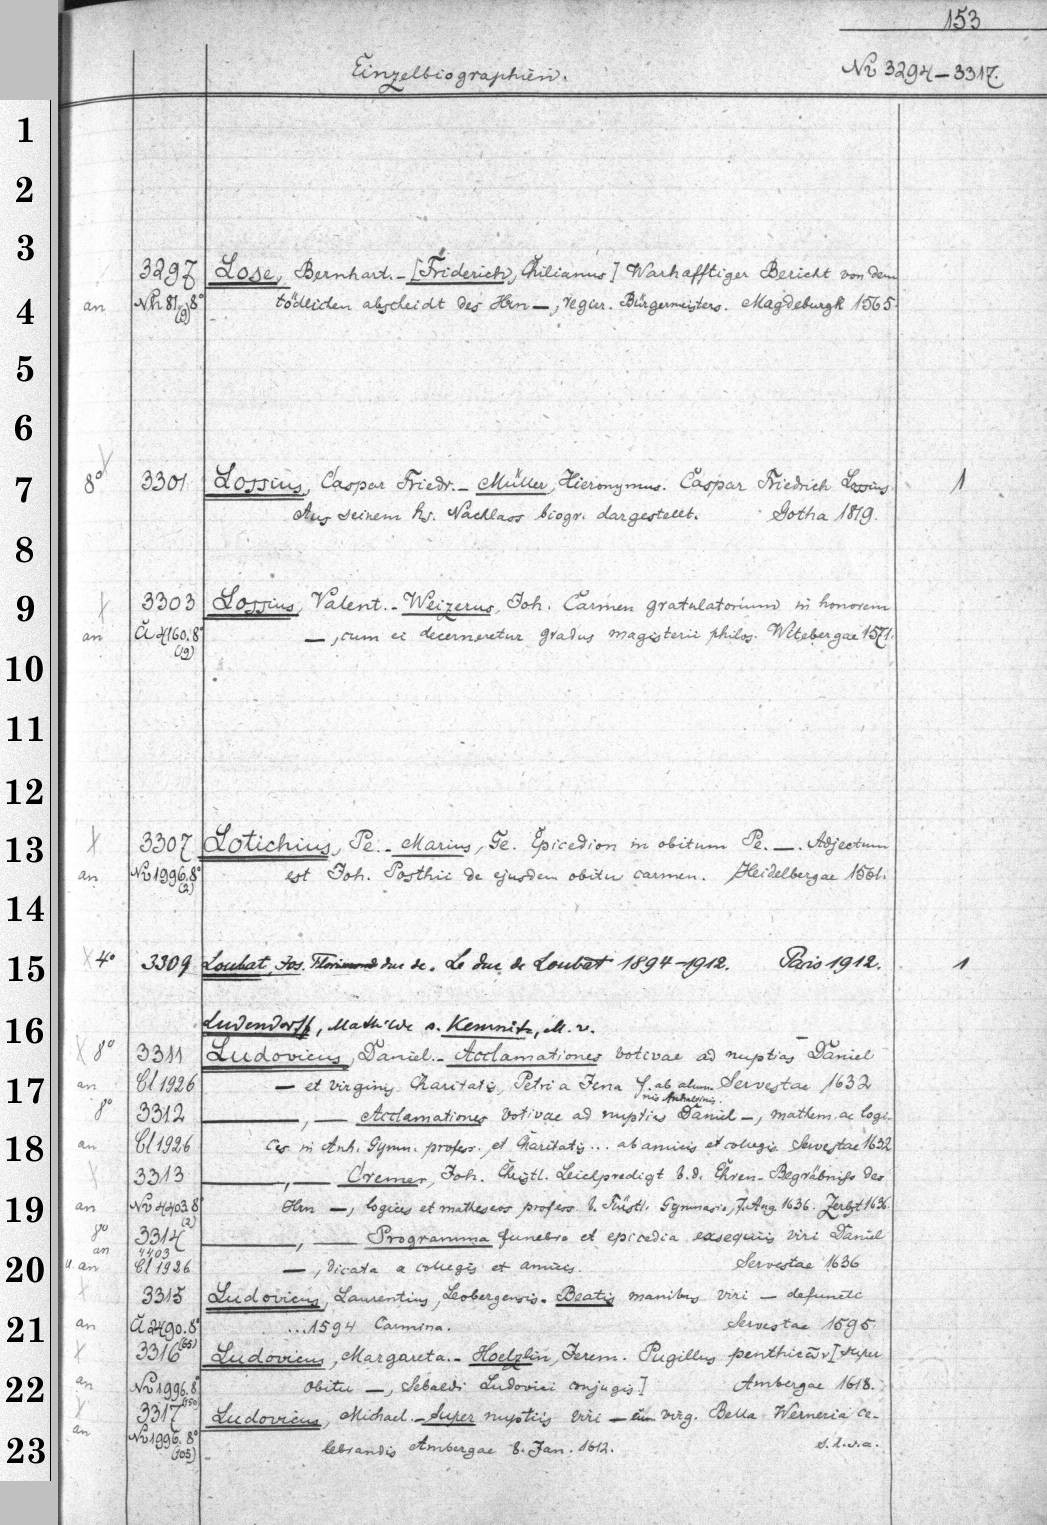 153
Einzelbiographien. Nr 3294–3317.
1
2
3
3297 Lose, Bernhart. – [Friderich, Chilianus] Warhafftiger Bericht von dem
4 an Nh 81,8° (9) tödtlichen abscheidt des Hrn —, regier. Bürgermeisters. Magdeburgk 1565.
5
6
7 8° 3301 Lossius, Caspar Friedr. – Müller, Hieronymus. Caspar Friedrich Lossius. 1
Aus seinem hs. Nachlass biogr. dargestellt. Gotha 1819.
8
9 3303 Lossius, Valent. – Weizerus, Joh. Carmen gratulatorium in honorem
an 4160.8° (19) —, cum ei decerneretur gradus magisterii philos. Witebergae 1571.
10
11
12
13 3307 Lotichius, Pe. – Marius, Ge. Epicedion in obitum Pe. —. Adjectum
an Nr 1996.8° (2) est Joh. Posthii de ejusdem obitu carmen. Heidelbergae
14
15 4° 3309 Loubat, Jos. Florimond duc de. Le duc de Loubat 1894–1912. Paris 1912. 1
16 Ludendorff, Mathilde s. Kemnitz, M. v.
8° 3311 Ludovicus, Daniel. – Acclamationes votivae ad nuptias Daniel
17 an Cl 1926 — et virginis Charitatis, Petri a Jena f. ab alumnis Anhaltinis. Servestae 1632
8° 3312 —, — Acclamationes votivae ad nuptias Daniel —, mathem. ac logi-
18 an Cl 1926 ces in Anh. Gymn. profess. et Charitatis ... ab amicis et collegis Servestae 1632
3313 —, — Cremer, Joh. Christl. Leichpredigt b. d. Ehren-Begräbniss des
19 an Nr 4403.8° (2) Hrn —, logices et matheseos profess. b. Fürstl. Gymnasio, 7. Aug. 1636. Zerbst 1636.
8° an 3314 —, — Programma funebre et epicedia exsequiis viri Daniel
20 u. an 4403 Cl 1926 —, dicata a collegis et amicis. Servestae 1636
3315 Ludovicus, Laurentius, Leobergensis. Beatis manibus viri — defuncti
21 an 2490.8° (65) ...1594 Carmina. Servestae 1595
3316 Ludovicus, Margareta. – Hoelzlin, Jerem. Pugillus [super
22 an Nr 1996.8° (150) obitu —, Sebaldi Ludovici conjugis] Ambergae 1618.
3317 Ludovicus, Michael. – Super nuptiis viri — cum virg. Bella Werneria ce-
23 an Nr 1996.8° (105) lebrandis Ambergae 8. Jan. 1612. s.l.e.a.